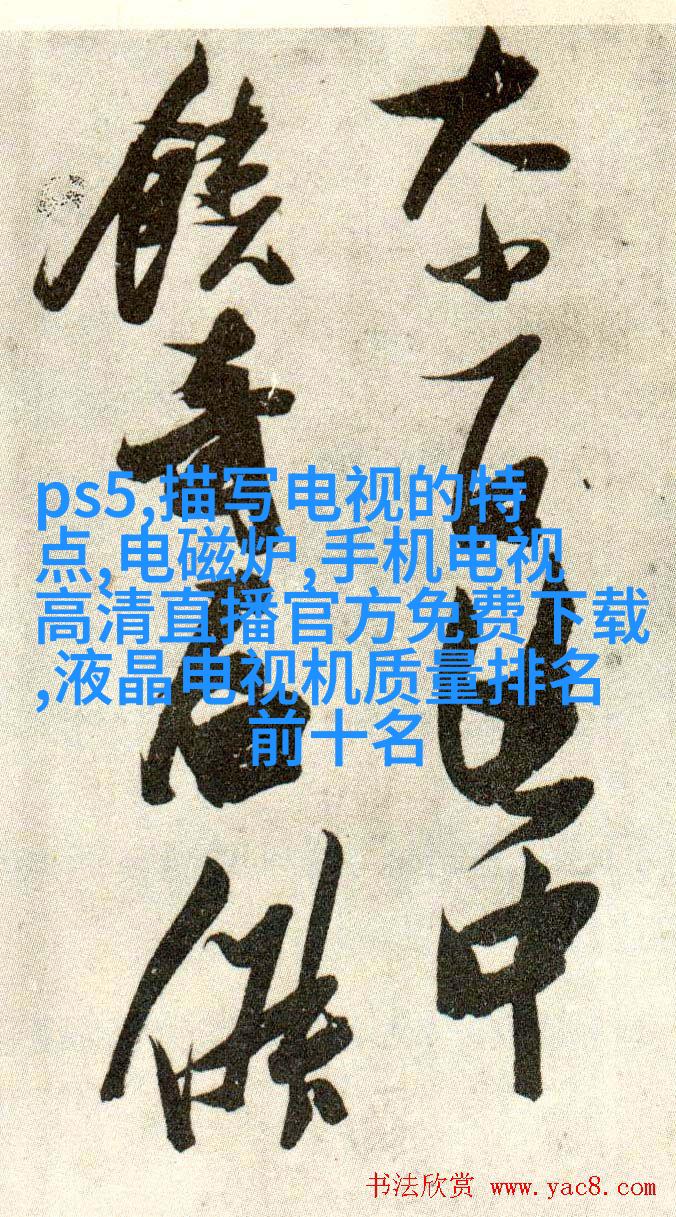 大小石中
饒奇
ps5,描写电视的特
点,电磁炉,手机电视
高清直播官方免费下载
,液晶电视机质量排名
前十名
书法欣赏 www.yac8.com